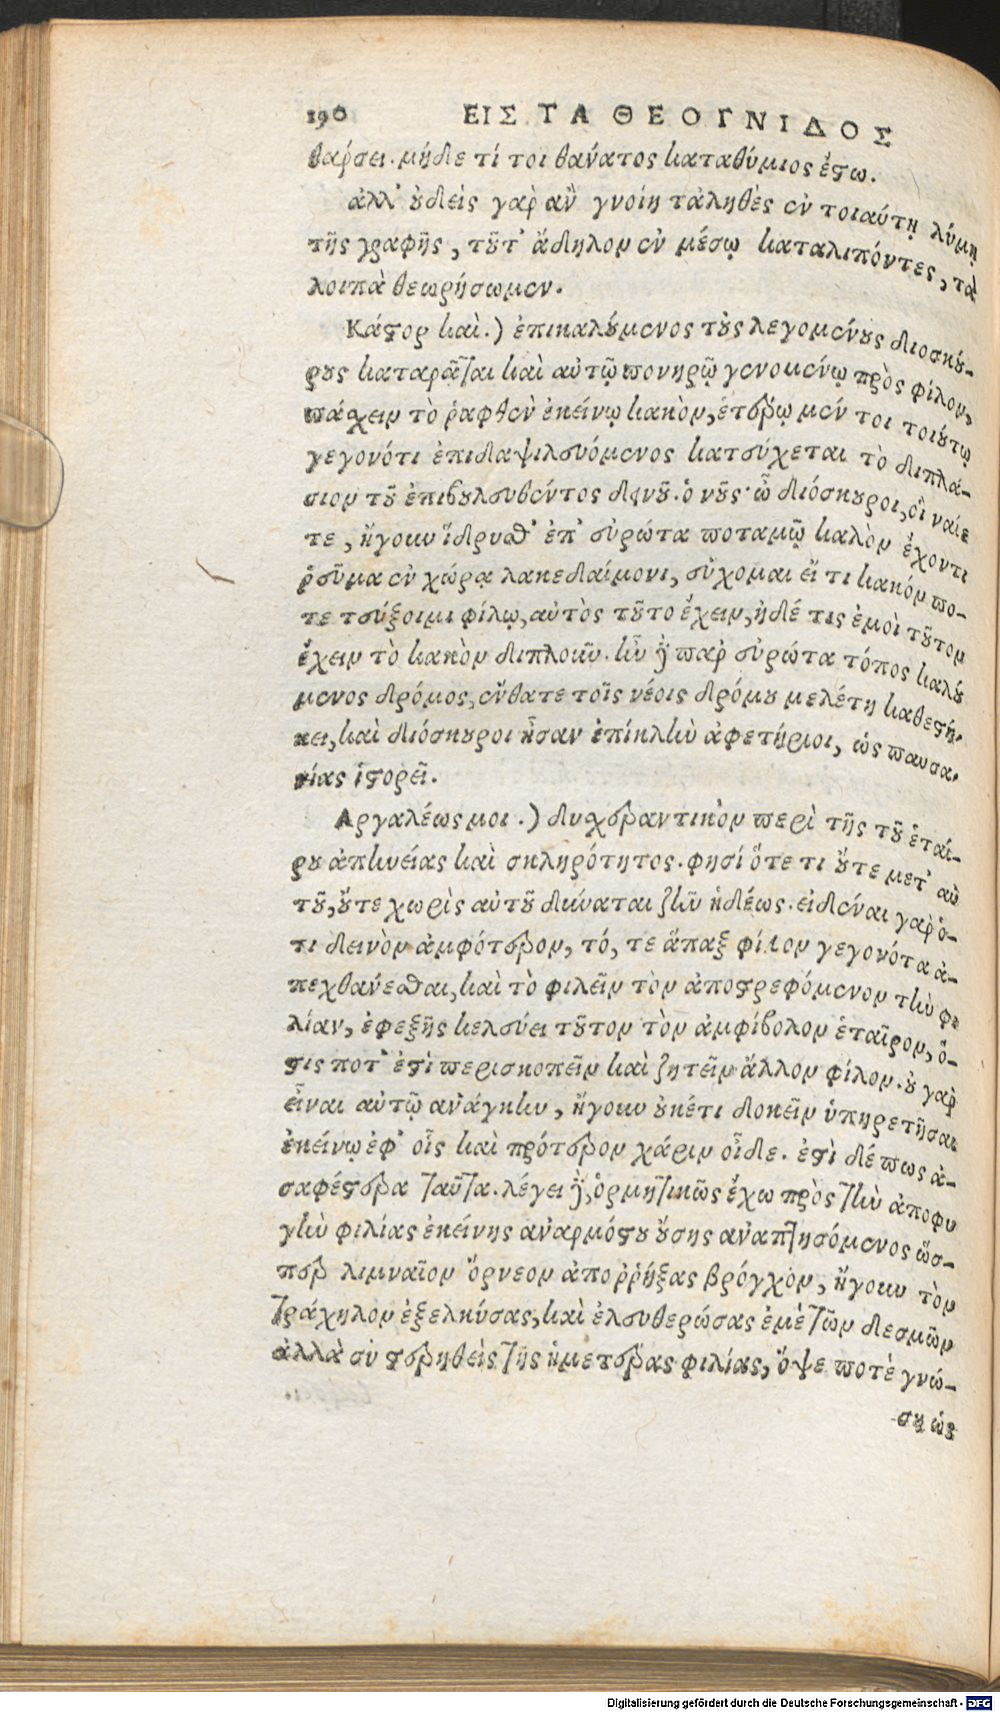 190 ΕΙΣ ΤΑ ΘΕΟΓΝΙΔΟΣ
θαρσει. μήδε τί τοι θανάτος καταθύμιος ἔστω.
ἀλλ' οὐδεὶς γαρ ἂν γνοίη τἀληθὲς ἐν τοιαύτῃ λύμῃ
τῆς γραφῆς, τοῦτ' ἄδηλον ἐν μέσῳ καταλιπόντες, τὰ
λοιπὰ θεωρήσωμεν.
Κάστορ καὶ.) ἐπικαλούμενος τοὺς λεγομένους διοσκού-
ρους καταρᾶται καὶ αὐτῷ πονηρῷ γενομένῳ πρὸς φίλον,
πάσχειν τὸ ῥαφθὲν ἐκείνῳ κακὸν, ἑτέρῳ μέν τοι τοιούτῳ
γεγονότι ἐπιδαψιλευόμενος κατεύχεται τὸ διπλά-
σιον τοῦ ἐπιβουλευθέντος δεινοῦ. ὁ νοῦς· ὦ διόσκουροι, οἳ ναίε
τε, ἤγουν ἵδρυσθ' ἐπ' εὐρώτα ποταμῷ καλὸν ἔχοντι
ῥεῦμα ἐν χώρᾳ λακεδαίμονι, εὔχομαι εἴ τι κακόν πο-
τε τεύξοιμι φίλῳ, αὐτὸς τοῦτο ἔχειν, ἠδέ τις ἐμοὶ τοῦτον
ἔχειν τὸ κακὸν διπλοῦν. ἦν δὲ παρ εὐρώτα τόπος καλού
μενος δρόμος, ἔνθατε τοῖς νέοις δρόμου μελέτη καθεστή-
κει, καὶ διόσκουροι ἦσαν ἐπίκλην ἀφετήριοι, ὡς παυσα-
νίας ἱστορεῖ.
Αργαλέως μοι.) δυσχεραντικὸν περὶ τῆς τοῦ ἑταί-
ρου ἀπηνείας καὶ σκληρότητος. φησί ὅτε τι οὔτε μετ' αὐ
τοῦ, οὔτε χωρὶς αὐτοῦ δύναται ζῆν ἡδέως. εἰδέναι γὰρ ὅ-
τι δεινὸν ἀμφότερον, τό, τε ἅπαξ φίλον γεγονότα ἀ-
πεχθανέσθαι, καὶ τὸ φιλεῖν τὸν ἀποστρεφόμενον τὴν φι
λίαν, ἐφεξῆς κελεύει τοῦτον τὸν ἀμφίβολον ἑταῖρον, ὅ-
στις ποτ' ἐστὶ περισκοπεῖν καὶ ζητεῖν ἄλλον φίλον. οὐ γαρ
εἶναι αὐτῷ ανάγκην, ἤγουν οὐκέτι δοκεῖν ὑπηρετῆσαι
ἐκείνῳ ἐφ' οἷς καὶ πρότερον χάριν οἶδε. ἐστὶ δέ πως ἀ-
σαφέστερα ταῦτα. λέγει δὲ, ὁρμητικῶς ἔχω πρὸς τὴν ἀποφυ
γὴν φιλίας ἐκείνης αναρμόστου οὔσης αναπτησόμενος ὥσ-
περ λιμναῖον ὄρνεον ἀποῤῥήξας βρόγχον, ἤγουν τὸν
τράχηλον ἐξελκύσας, καὶ ἐλευθερώσας ἐμὲ τῶν δεσμῶν
ἀλλὰ σὺ στερηθεὶς τῆς ἡμετέρας φιλίας, ὄψε ποτὲ γνώ-
σῃ ὡς
Digitalisierung gefördert durch die Deutsche Forschungsgemeinschaft - DFG